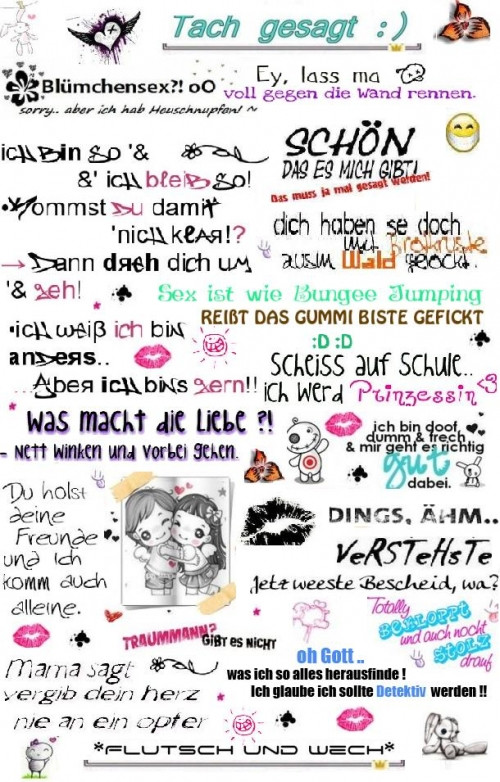 Tach gesagt :)
Blümchensex?! oO
sorry.. aber ich hab Heuschnupfen! ~
Ey, lass ma
voll gegen die Wand rennen.
ich bin so '&
&' ich bleib so!
Kommst du damit
'nicht klar!?
→ Dann dreh dich um
'& geh!
SCHÖN
DAS ES MICH GIBT!
Das muss ja mal gesagt werden!
dich haben se doch
mit Brotkruste
ausm Wald gelockt.
Sex ist wie Bungee Jumping
REIßT DAS GUMMI BISTE GEFICKT
•ich weiß ich bin
anders..
...Aber ich bins gern!!
:D :D
Scheiss auf Schule..
ich werd Prinzessin <3
Was macht die Liebe ?!
- Nett winken und vorbei gehen.
ich bin doof,
dumm & frech
& mir geht es richtig
gut
dabei.
Du holst
deine
Freunde
und Ich
komm auch
alleine.
DINGS, ÄHM..
VeRSTeHsTe
Jetz weeste Bescheid, wa?
TRAUMMANN?
GIBT ES NICHT
Totally
BEKLOPPT
und auch noch
STOLZ
drauf
Mama sagt
vergib dein herz
nie an ein opfer
oh Gott ..
was ich so alles herausfinde !
Ich glaube ich sollte Detektiv werden !!
*FLUTSCH UND WECH*